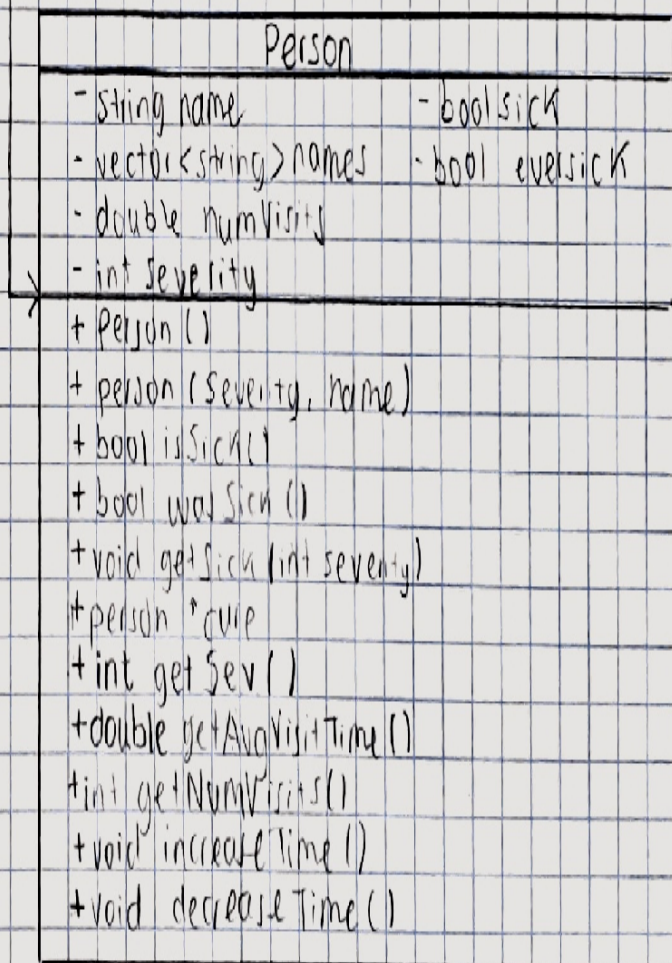 Person
- string name - bool sick
- vector<string> names - bool eversick
- double numVisits
- int severity
+ Person ()
+ person (severity, name)
+ bool isSick()
+ bool wasSick ()
+ void getSick (int severity)
+ person * cure
+ int getSev ()
+ double getAvgVisitTime ()
+ int getNumVisits()
+ void increaseTime ()
+ void decreaseTime ()